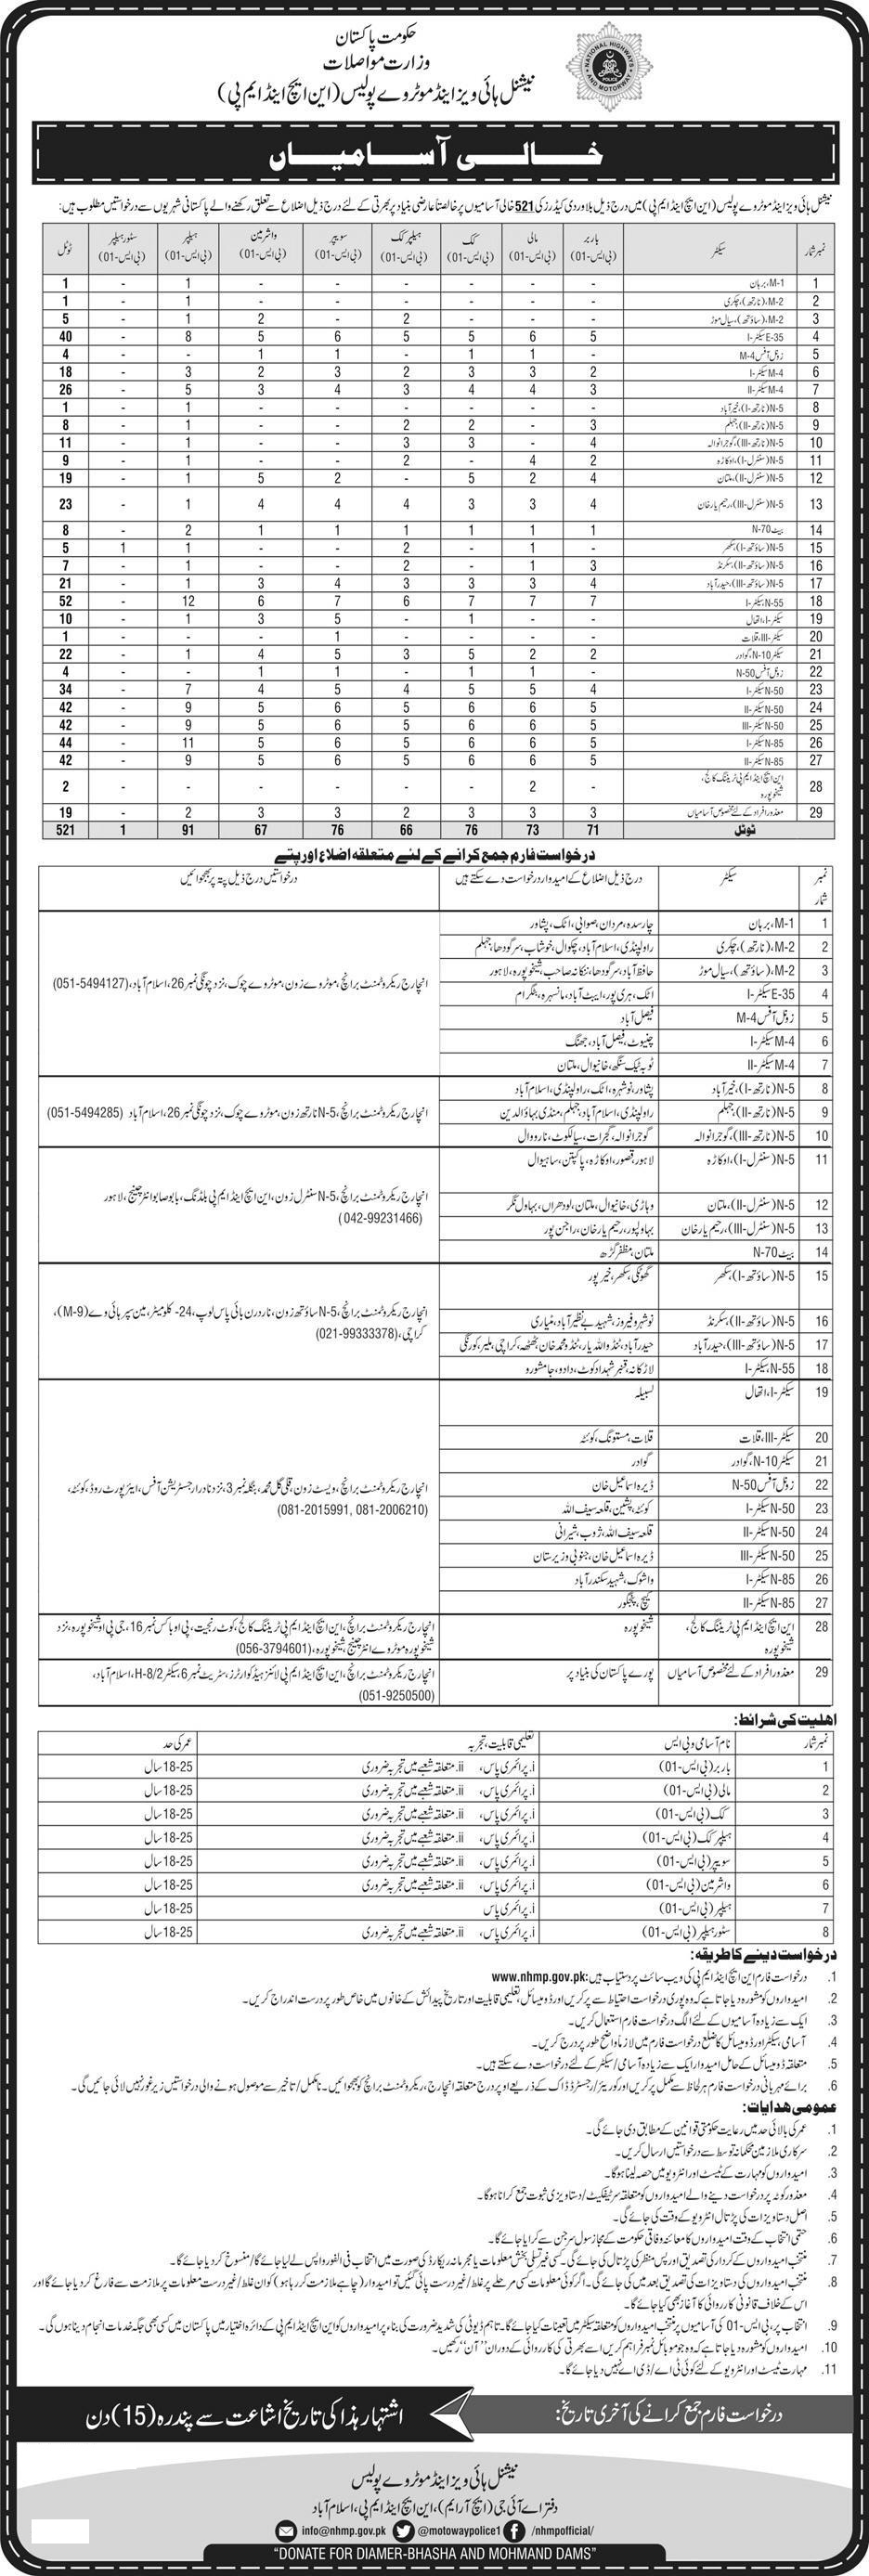 حکومت پاکستان
وزارت مواصلات
نیشنل ہائی ویز اینڈ موٹروے پولیس (این ایچ اینڈ ایم پی)
NATIONAL HIGHWAYS AND MOTORWAY POLICE
خالی آسامیاں
نیشنل ہائی ویز اینڈ موٹروے پولیس (این ایچ اینڈ ایم پی) میں درج ذیل بلاوردی کیڈرز کی 521 خالی آسامیوں پر خالصتاً عارضی بنیاد پر بھرتی کے لئے درج ذیل اضلاع سے تعلق رکھنے والے پاکستانی شہریوں سے درخواستیں مطلوب ہیں:
نمبر شمار سیکٹر باربر (بی ایس-01) مالی (بی ایس-01) کک (بی ایس-01) ہیلپر کک (بی ایس-01) سویپر (بی ایس-01) واشرمین (بی ایس-01) ہیلپر (بی ایس-01) سٹور ہیلپر (بی ایس-01) ٹوٹل
1 M-1، برہان - - - - - - 1 - 1
2 M-2، (نارتھ)، چکری - - - - - - 1 - 1
3 M-2، (ساؤتھ)، سیال موڑ - - - 2 - 2 1 - 5
4 E-35 سیکٹر-I 5 6 5 5 6 5 8 - 40
5 زونل آفس M-4 - 1 1 - 1 1 - - 4
6 M-4 سیکٹر-I 2 3 3 2 3 2 3 - 18
7 M-4 سیکٹر-II 3 4 4 3 4 3 5 - 26
8 N-5 (نارتھ-I)، خیرآباد - - - - - - 1 - 1
9 N-5 (نارتھ-II)، جہلم 3 - 2 2 - - 1 - 8
10 N-5 (نارتھ-III)، گوجرانوالہ 4 - 3 3 - - 1 - 11
11 N-5 (سنٹرل-I)، اوکاڑہ 2 4 - 2 - - 1 - 9
12 N-5 (سنٹرل-II)، ملتان 4 2 5 - 2 5 1 - 19
13 N-5 (سنٹرل-III)، رحیم یار خان 4 3 3 4 4 4 1 - 23
14 بیٹ N-70 1 1 1 1 1 1 2 - 8
15 N-5 (ساؤتھ-I)، سکھر - 1 - 2 - - 1 1 5
16 N-5 (ساؤتھ-II)، سکرنڈ 3 1 - 2 - - 1 - 7
17 N-5 (ساؤتھ-III)، حیدرآباد 4 3 3 3 4 3 1 - 21
18 N-55، سیکٹر-I 7 7 7 6 7 6 12 - 52
19 سیکٹر-I، اتھال - - 1 - 5 3 1 - 10
20 سیکٹر-III، قلات - - - - 1 - - - 1
21 سیکٹر N-10، گوادر 2 2 5 3 5 4 1 - 22
22 زونل آفس N-50 - 1 1 - 1 1 - - 4
23 N-50 سیکٹر-I 4 5 5 4 5 4 7 - 34
24 N-50 سیکٹر-II 5 6 6 5 6 5 9 - 42
25 N-50 سیکٹر-III 5 6 6 5 6 5 9 - 42
26 N-85 سیکٹر-I 5 6 6 5 6 5 11 - 44
27 N-85 سیکٹر-II 5 6 6 5 6 5 9 - 42
28 این ایچ اینڈ ایم پی ٹریننگ کالج، شیخوپورہ - 2 - - - - - - 2
29 معذور افراد کے لئے مخصوص آسامیاں 3 3 3 2 3 3 2 - 19
ٹوٹل 71 73 76 66 76 67 91 1 521
درخواست فارم جمع کرانے کے لئے متعلقہ اضلاع اور پتے
نمبر شمار سیکٹر درج ذیل اضلاع کے امیدوار درخواست دے سکتے ہیں درخواستیں درج ذیل پتہ پر بھجوائیں
1 M-1، برہان چارسدہ، مردان، صوابی، اٹک، پشاور
2 M-2، (نارتھ)، چکری راولپنڈی، اسلام آباد، چکوال، خوشاب، سرگودھا، جہلم
3 M-2، (ساؤتھ)، سیال موڑ حافظ آباد، سرگودھا، ننکانہ صاحب، شیخوپورہ، لاہور
4 E-35 سیکٹر-I اٹک، ہری پور، ایبٹ آباد، مانسہرہ، بٹگرام
انچارج ریکروٹمنٹ برانچ، موٹروے زون، موٹروے چوک، نزد چونگی نمبر 26، اسلام آباد، (051-5494127)
5 زونل آفس M-4 فیصل آباد
6 M-4 سیکٹر-I چنیوٹ، فیصل آباد، جھنگ
7 M-4 سیکٹر-II ٹوبہ ٹیک سنگھ، خانیوال، ملتان
8 N-5 (نارتھ-I)، خیرآباد پشاور، نوشہرہ، اٹک، راولپنڈی، اسلام آباد
9 N-5 (نارتھ-II)، جہلم راولپنڈی، اسلام آباد، جہلم، منڈی بہاؤالدین
انچارج ریکروٹمنٹ برانچ، N-5 نارتھ زون، موٹروے چوک، نزد چونگی نمبر 26، اسلام آباد (051-5494285)
10 N-5 (نارتھ-III)، گوجرانوالہ گوجرانوالہ، گجرات، سیالکوٹ، نارووال
11 N-5 (سنٹرل-I)، اوکاڑہ لاہور، قصور، اوکاڑہ، پاکپتن، ساہیوال
انچارج ریکروٹمنٹ برانچ، N-5 سنٹرل زون، این ایچ اینڈ ایم پی بلڈنگ، بابو صابو انٹرچینج، لاہور
(042-99231466)
12 N-5 (سنٹرل-II)، ملتان وہاڑی، خانیوال، ملتان، لودھراں، بہاولنگر
13 N-5 (سنٹرل-III)، رحیم یار خان بہاولپور، رحیم یار خان، راجن پور
14 بیٹ N-70 ملتان، مظفرگڑھ
15 N-5 (ساؤتھ-I)، سکھر گھوٹکی، سکھر، خیرپور
انچارج ریکروٹمنٹ برانچ، N-5 ساؤتھ زون، ناردرن بائی پاس لوپ، 24- کلومیٹر، مین سپر ہائی وے (M-9)،
کراچی، (021-99333378)
16 N-5 (ساؤتھ-II)، سکرنڈ نوشہرو فیروز، شہید بے نظیر آباد، مٹیاری
17 N-5 (ساؤتھ-III)، حیدرآباد حیدرآباد، ٹنڈو اللہ یار، ٹنڈو محمد خان، ٹھٹھہ، کراچی، ملیر، کورنگی
18 N-55، سیکٹر-I لاڑکانہ، قنبر شہدادکوٹ، دادو، جامشورو
19 سیکٹر-I، اتھال لسبیلہ
20 سیکٹر-III، قلات قلات، مستونگ، کوئٹہ
21 سیکٹر N-10، گوادر گوادر
22 زونل آفس N-50 ڈیرہ اسماعیل خان
انچارج ریکروٹمنٹ برانچ، ویسٹ زون، کلی گل محمد، بنگلہ نمبر 3، نزد نادرا رجسٹریشن آفس، ایئرپورٹ روڈ، کوئٹہ،
(081-2015991, 081-2006210)
23 N-50 سیکٹر-I کوئٹہ، پشین، قلعہ سیف اللہ
24 N-50 سیکٹر-II قلعہ سیف اللہ، ژوب، شیرانی
25 N-50 سیکٹر-III ڈیرہ اسماعیل خان، جنوبی وزیرستان
26 N-85 سیکٹر-I واشوک، شہید سکندر آباد
27 N-85 سیکٹر-II کیچ، پنجگور
28 این ایچ اینڈ ایم پی ٹریننگ کالج، شیخوپورہ شیخوپورہ
انچارج ریکروٹمنٹ برانچ، این ایچ اینڈ ایم پی ٹریننگ کالج، کوٹ رنجیت، پی او باکس نمبر 16، جی پی او شیخوپورہ، نزد
شیخوپورہ موٹروے انٹرچینج شیخوپورہ، (056-3794601)
29 معذور افراد کے لئے مخصوص آسامیاں پورے پاکستان کی بنیاد پر
انچارج ریکروٹمنٹ برانچ، این ایچ اینڈ ایم پی لائنز ہیڈکوارٹرز، سٹریٹ نمبر 6 سیکٹر H-8/2، اسلام آباد،
(051-9250500)
اہلیت کی شرائط:
نمبر شمار نام آسامی و بی ایس تعلیمی قابلیت، تجربہ عمر کی حد
1 باربر (بی ایس-01) i. پرائمری پاس، ii. متعلقہ شعبے میں تجربہ ضروری 18-25 سال
2 مالی (بی ایس-01) i. پرائمری پاس، ii. متعلقہ شعبے میں تجربہ ضروری 18-25 سال
3 کک (بی ایس-01) i. پرائمری پاس، ii. متعلقہ شعبے میں تجربہ ضروری 18-25 سال
4 ہیلپر کک (بی ایس-01) i. پرائمری پاس، ii. متعلقہ شعبے میں تجربہ ضروری 18-25 سال
5 سویپر (بی ایس-01) i. پرائمری پاس، ii. متعلقہ شعبے میں تجربہ ضروری 18-25 سال
6 واشرمین (بی ایس-01) i. پرائمری پاس، ii. متعلقہ شعبے میں تجربہ ضروری 18-25 سال
7 ہیلپر (بی ایس-01) i. پرائمری پاس 18-25 سال
8 سٹور ہیلپر (بی ایس-01) i. پرائمری پاس، ii. متعلقہ شعبے میں تجربہ ضروری 18-25 سال
درخواست دینے کا طریقہ:
1. درخواست فارم این ایچ اینڈ ایم پی کی ویب سائٹ پر دستیاب ہیں: www.nhmp.gov.pk
2. امیدواروں کو مشورہ دیا جاتا ہے کہ وہ پوری درخواست احتیاط سے پر کریں اور ڈومیسائل، تعلیمی قابلیت اور تاریخ پیدائش کے خانوں میں خاص طور پر درست اندراج کریں۔
3. ایک سے زیادہ آسامیوں کے لئے الگ درخواست فارم استعمال کریں۔
4. آسامی، سیکٹر اور ڈومیسائل کا ضلع درخواست فارم میں لازماً واضح طور پر درج کریں۔
5. متعلقہ ڈومیسائل کے حامل امیدوار ایک سے زیادہ آسامی/سیکٹر کے لئے درخواست دے سکتے ہیں۔
6. برائے مہربانی درخواست فارم ہر لحاظ سے مکمل پر کریں اور کوریئر/رجسٹرڈ ڈاک کے ذریعے اوپر درج متعلقہ انچارج، ریکروٹمنٹ برانچ کو بھجوائیں۔ نامکمل/تاخیر سے موصول ہونے والی درخواستیں زیر غور نہیں لائی جائیں گی۔
عمومی ہدایات:
1. عمر کی بالائی حد میں رعایت حکومتی قوانین کے مطابق دی جائے گی۔
2. سرکاری ملازمین محکمانہ توسط سے درخواستیں ارسال کریں۔
3. امیدواروں کو مہارت کے ٹیسٹ اور انٹرویو میں حصہ لینا ہوگا۔
4. معذور کوٹہ پر درخواست دینے والے امیدواروں کو متعلقہ سرٹیفکیٹ/دستاویزی ثبوت جمع کرانا ہوگا۔
5. اصل دستاویزات کی پڑتال انٹرویو کے وقت کی جائے گی۔
6. حتمی انتخاب کے وقت امیدواروں کا معائنہ وفاقی حکومت کے مجاز سول سرجن سے کرایا جائے گا۔
7. منتخب امیدواروں کے کردار کی تصدیق اور پس منظر کی پڑتال کی جائے گی۔ کسی غیر تسلی بخش معلومات یا مجرمانہ ریکارڈ کی صورت میں انتخاب فی الفور واپس لے لیا جائے گا/منسوخ کر دیا جائے گا۔
8. منتخب امیدواروں کی دستاویزات کی تصدیق بعد میں کی جائے گی۔ اگر کوئی معلومات کسی مرحلے پر غلط/غیر درست پائی گئیں تو امیدوار (چاہے ملازمت کر رہا ہو) کو ان غلط/غیر درست معلومات پر ملازمت سے فارغ کر دیا جائے گا اور
اس کے خلاف قانونی کارروائی کا آغاز بھی کیا جائے گا۔
9. انتخاب پر، بی ایس-01 کی آسامیوں پر منتخب امیدواروں کو متعلقہ سیکٹر میں تعینات کیا جائے گا۔ تاہم ڈیوٹی کی شدید ضرورت کی بناء پر امیدواروں کو این ایچ اینڈ ایم پی کے دائرہ اختیار میں پاکستان میں کسی بھی جگہ خدمات انجام دینا ہوں گی۔
10. امیدواروں کو مشورہ دیا جاتا ہے کہ وہ جو موبائل نمبر فراہم کریں اسے بھرتی کی کارروائی کے دوران "آن" رکھیں۔
11. مہارت ٹیسٹ اور انٹرویو کے لئے کوئی ٹی اے/ڈی اے نہیں دیا جائے گا۔
درخواست فارم جمع کرانے کی آخری تاریخ: اشتہار ہذا کی تاریخ اشاعت سے پندرہ (15) دن
نیشنل ہائی ویز اینڈ موٹروے پولیس
دفتر اے آئی جی (ایچ آر ایم)، این ایچ اینڈ ایم پی، اسلام آباد
info@nhmp.gov.pk @motowaypolice1 /nhmpofficial/
"DONATE FOR DIAMER-BHASHA AND MOHMAND DAMS"